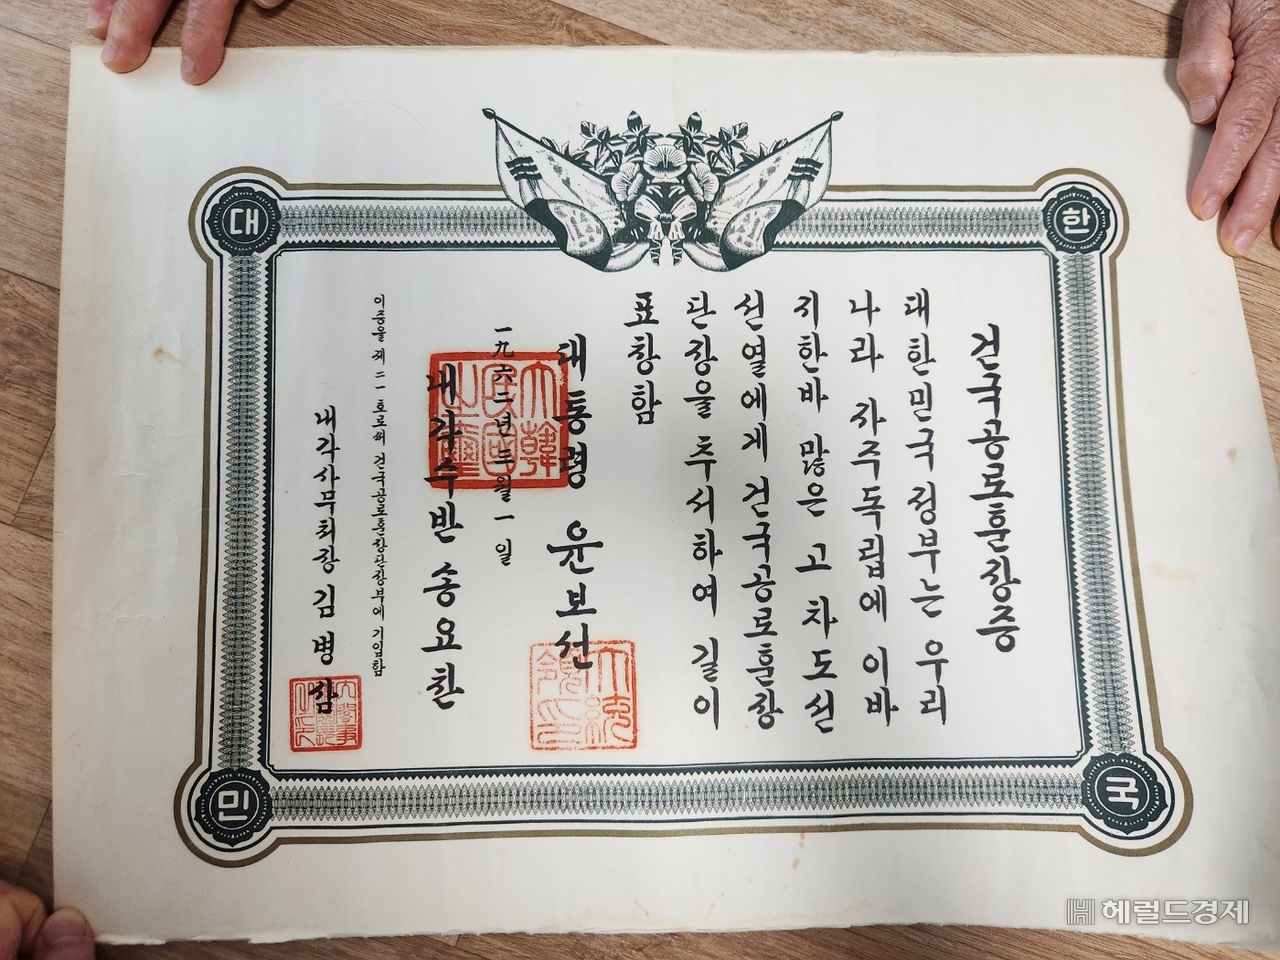 대 한
민 국
건국공로훈장증
대한민국 정부는 우리
나라 자주독립에 이바
지한바 많은 고 차도선
선열에게 건국공로훈장
단장을 추서하여 길이
표창함
대통령 윤보선
一九六二년 三월 一일
내각수반 송요찬
이증을 제 二一 호로써 건국공로훈장단장부에 기입함
내각사무처장 김병삼
大韓
民國
之璽
大統
領印
헤럴드경제